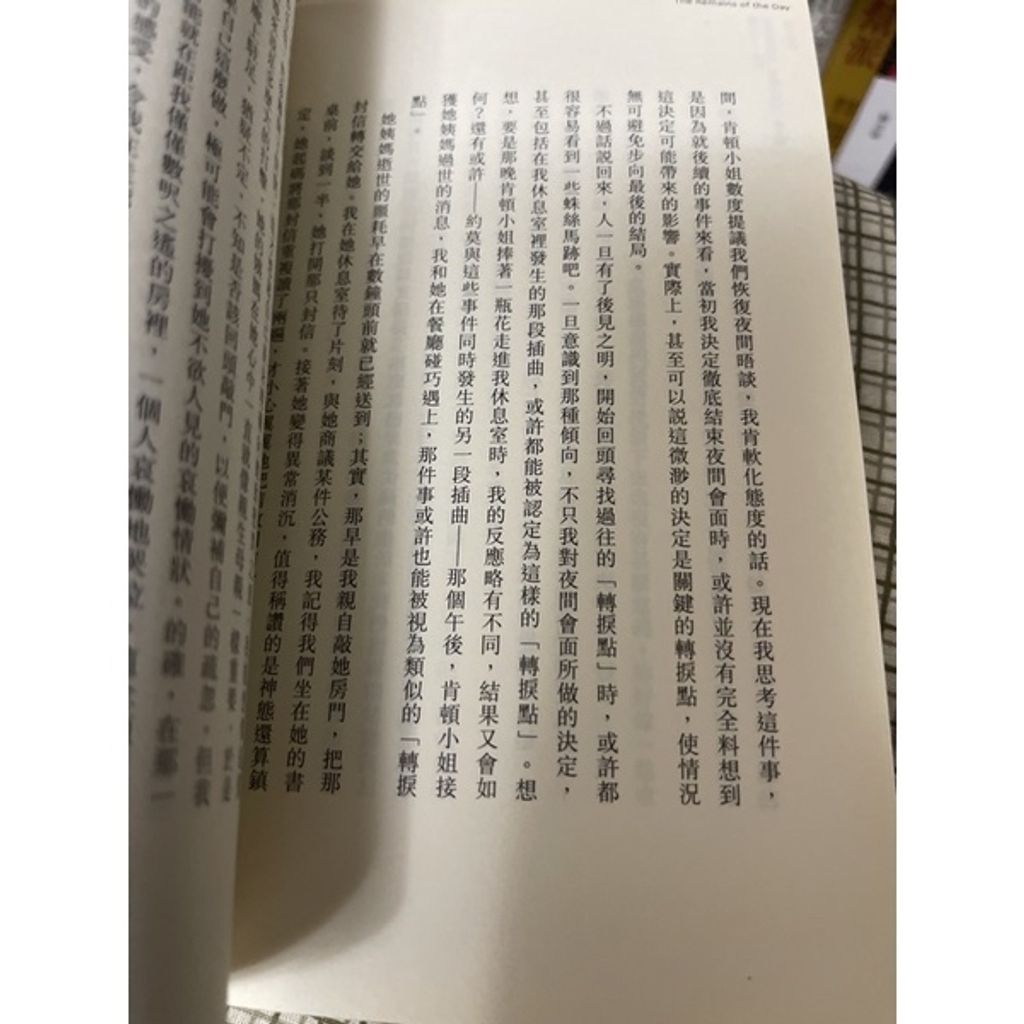 The Remains of the Day
間，肯頓小姐數度提議我們恢復夜間晤談，我肯軟化態度的話。現在我思考這件事，
是因為就後續的事件來看，當初我決定徹底結束夜間會面時，或許並沒有完全料想到
這決定可能帶來的影響。實際上，甚至可以說這微渺的決定是關鍵的轉捩點，使情況
無可避免步向最後的結局。
不過話說回來，人一旦有了後見之明，開始回頭尋找過往的「轉捩點」時，或許都
很容易看到一些蛛絲馬跡吧。一旦意識到那種傾向，不只我對夜間會面所做的決定，
甚至包括在我休息室裡發生的那段插曲，或許都能被認定為這樣的「轉捩點」。想
想，要是那晚肯頓小姐捧著一瓶花走進我休息室時，我的反應略有不同，結果又會如
何？還有或許——約莫與這些事件同時發生的另一段插曲——那個午後，肯頓小姐接
獲她姨媽過世的消息，我和她在餐廳碰巧遇上，那件事或許也能被視為類似的「轉捩
點」。
她姨媽逝世的噩耗早在數鐘頭前就已經送到；其實，那早是我親自敲她房門，把那
封信轉交給她。我在她休息室待了片刻，與她商議某件公務，我記得我們坐在她的書
桌前，談到一半，她打開那只封信。接著她變得異常消沉，值得稱讚的是神態還算鎮
定，她起碼將那封信重複讀了兩遍，才小心
不知是否該回頭敲門，以便彌補自己的疏忽，但我
極可能會打擾到她不欲人見的哀慟情狀。
就在距我僅僅數呎之遙的房裡，一個人哀慟地哭泣